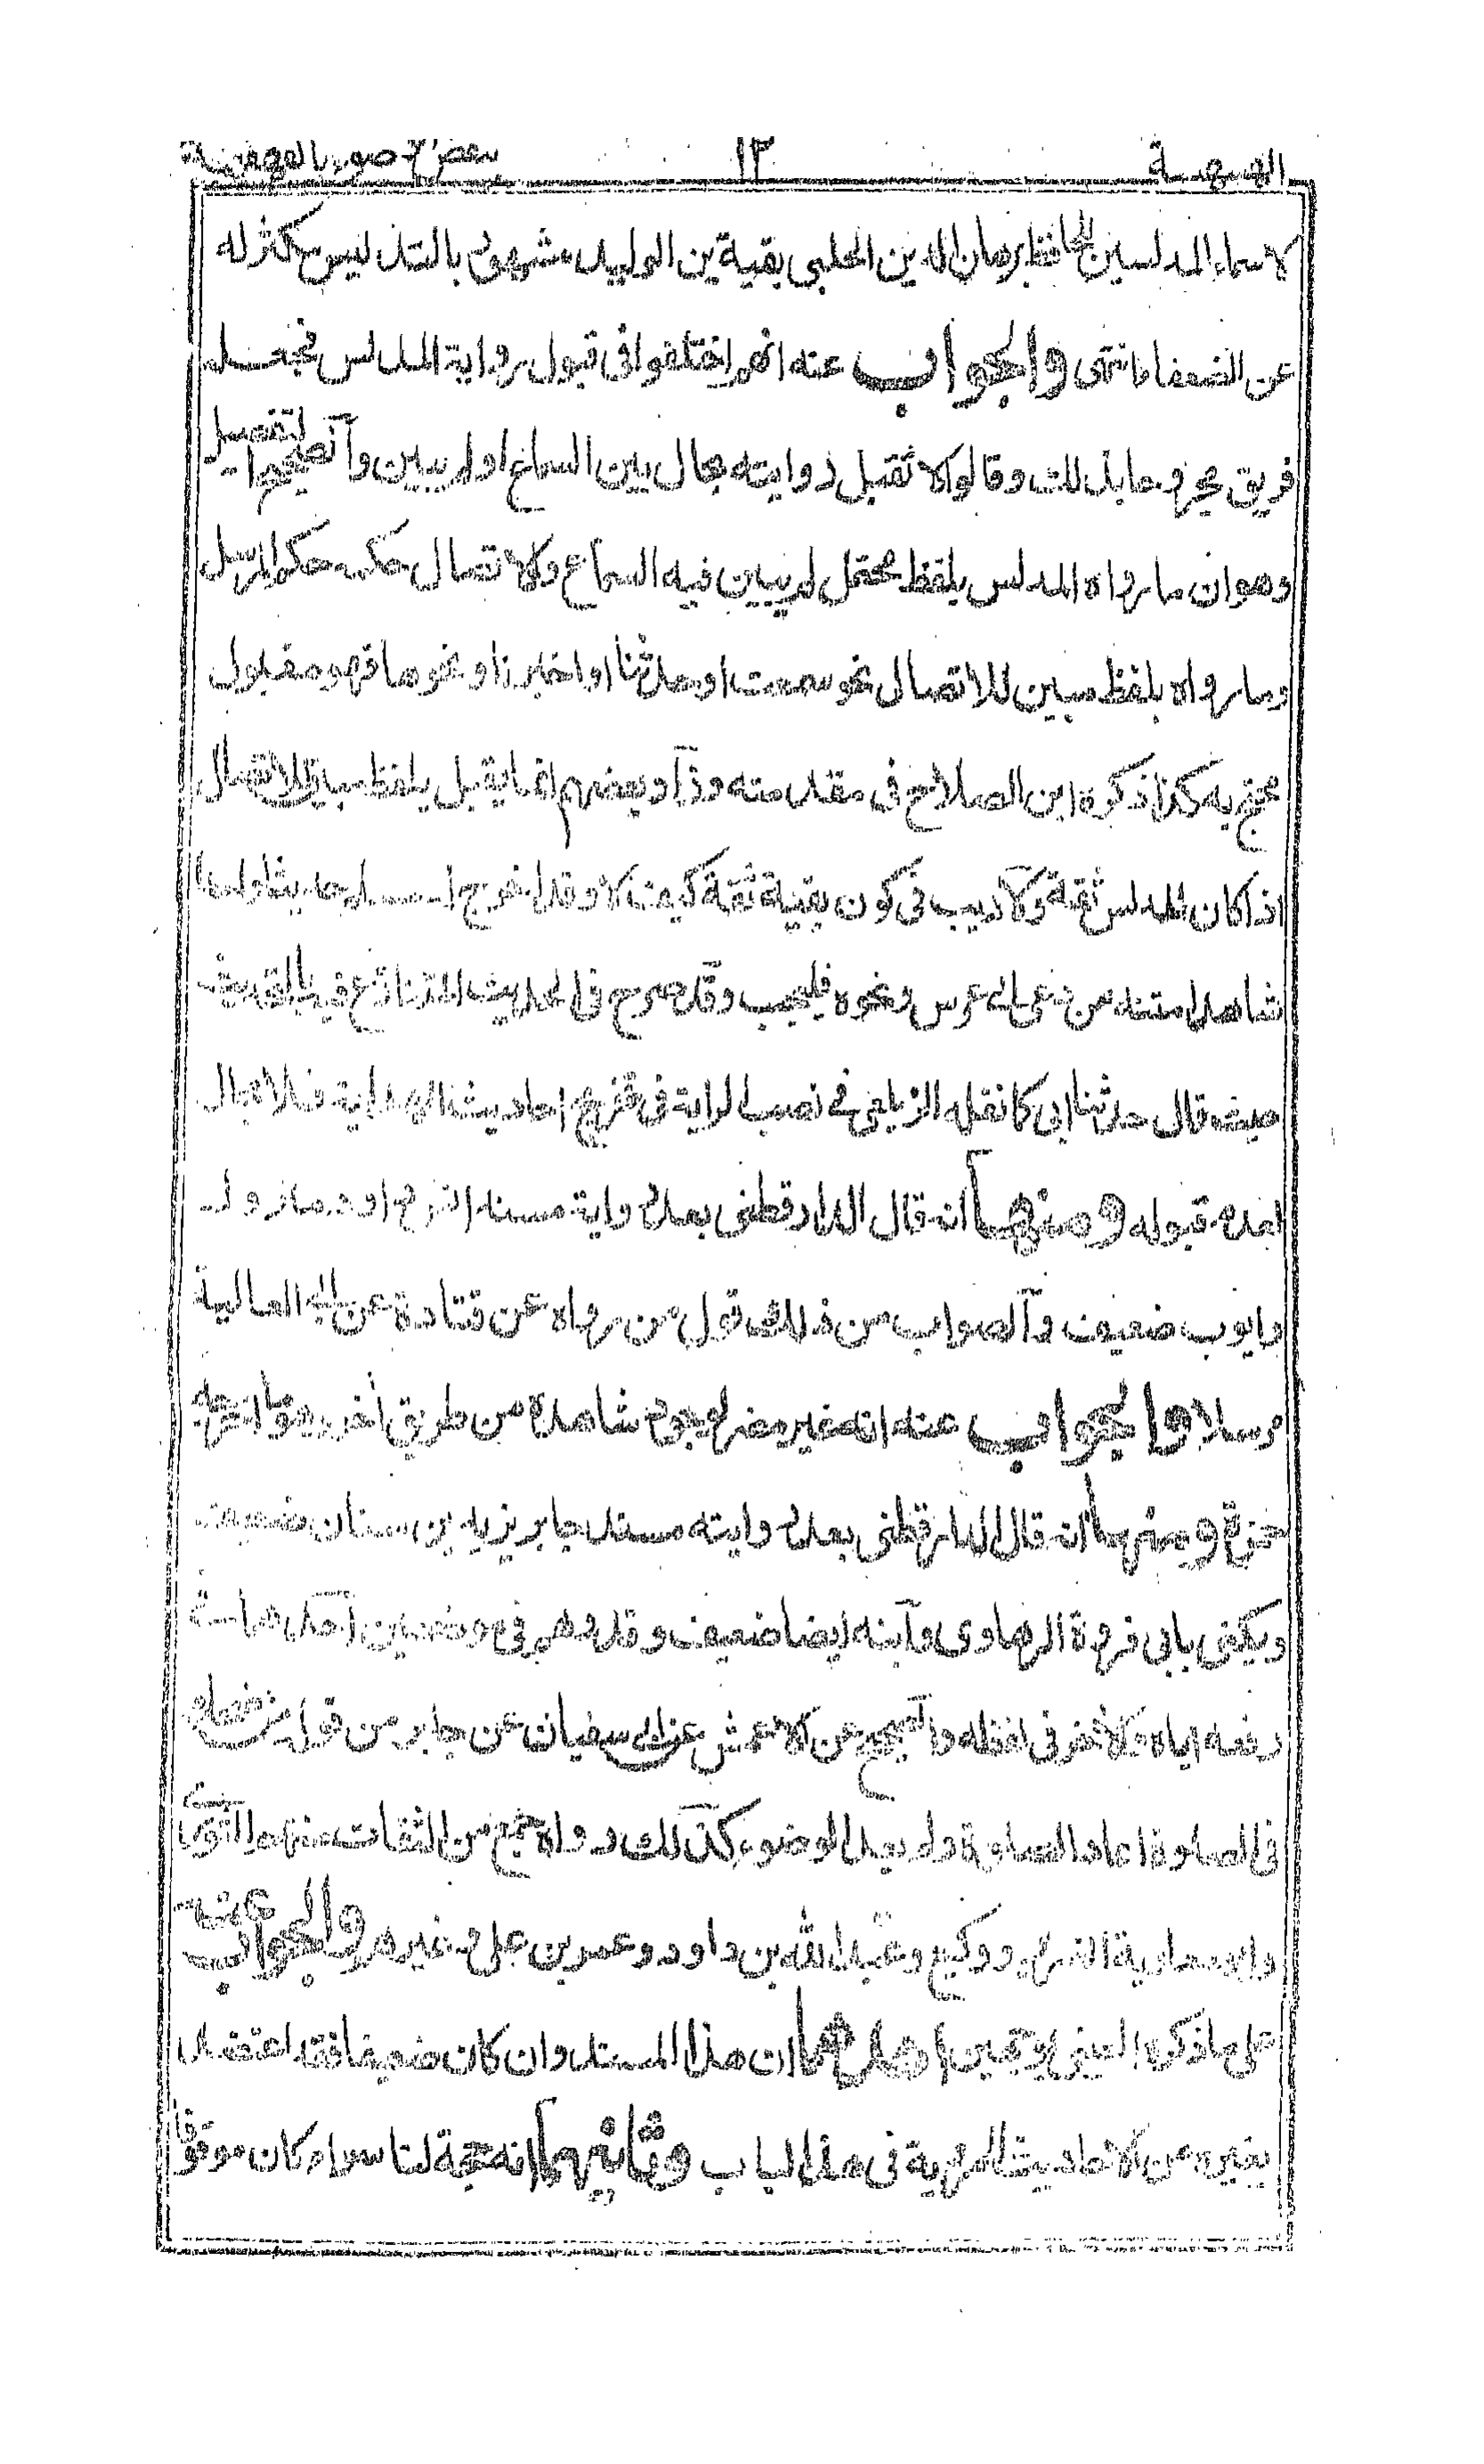 الهسهسة ١٢ بنقض الوضوء بالقهقهة
لاسماء المدلسين للحافظ برهان الدين الحلبي بقية بن الوليد مشهور بالتدليس مكثر له
عن الضعفاء انتهى والجواب عنه انهم اختلفوا فى قبول رواية المدلس فجعله
فريق مجروحا بذلك وقالوا لا تقبل روايته بحال بين السماع او لم يبين والصحيح التفصيل
وهو ان ما رواه المدلس بلفظ محتمل لم يبين فيه السماع والاتصال حكمه حكم المرسل
وما رواه بلفظ مبين للاتصال نحو سمعت او حدثنا او اخبرنا او نحوها فهو مقبول
محتج به كذا ذكره ابن الصلاح فى مقدمته وزاد بعضهم انما يقبل بلفظ مبين للاتصال
اذا كان المدلس ثقة ولا ريب فى كون بقية ثقة كيف لا وقد اخرج له مسلم حديثا واحدا
شاهدا متنه من دعى الى عرس ونحوه فليجب وقد صرح فى الحديث المتنازع فيه بالتحديث
حيث قال حدثنا ابى كما نقله الزيلعى فى نصب الراية فى تخريج احاديث الهداية فلا مجال
لعدم قبوله ومنها انه قال الدارقطنى بعد رواية مسند انس داود متروك
وايوب ضعيف والصواب من ذلك قول من رواه عن قتادة عن ابى العالية
مرسلا والجواب عنه انه غير مضر لوجود شاهده من طريق اخر
ومنها انه قال الدارقطنى بعد روايته مسند جابر يزيد بن سنان ضعيف
ويكنى بابى فروة الرهاوى وابنه ايضا ضعيف وقد وهم فى موضعين احدهما فى
رفعه اياه والاخر فى لفظه والصحيح عن الاعمش عن ابى سفيان عن جابر من قوله من ضحك
فى الصلوة اعاد الصلوة ولم يعد الوضوء كذلك رواه جمع من الثقات منهم الثورى
وابو معاوية الضرير ووكيع وعبد الله بن داود وعمر بن على وغيرهم والجواب عنه
على ما ذكره العينى بوجهين احدهما ان هذا المسند وان كان ضعيفا فقد اعتضد
بغيره من الاحاديث المروية فى هذا الباب وثانيهما انه حجة لنا سواء كان موقوفا